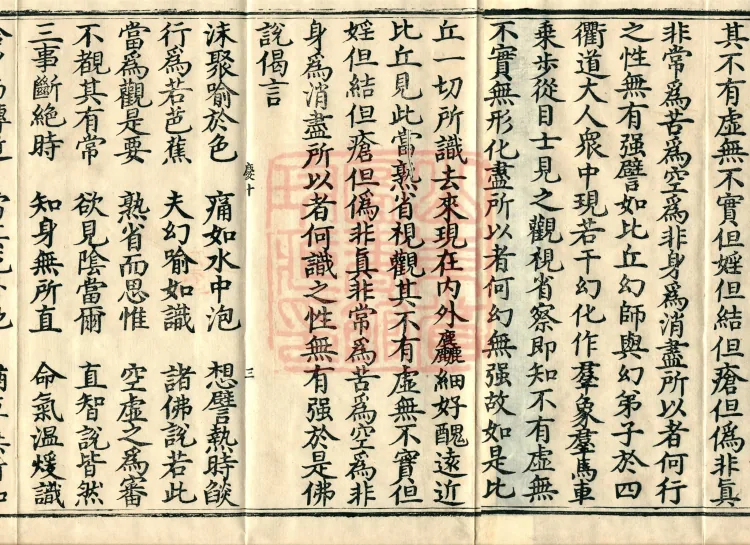 其不有虛無不實但婬但結但瘡但偽非真
非常為苦為空為非身為消盡所以者何行
之性無有强譬如比丘幻師與幻弟子於四
衢道大人眾中現若干幻化作羣象羣馬車
乗步從目士見之觀視省察即知不有虛無
不實無形化盡所以者何幻無强故如是比
丘一切所識去來現在內外麤細好醜遠近
比丘見此當熟省視觀其不有虛無不實但
婬但結但瘡但偽非真非常為苦為空為非
身為消盡所以者何識之性無有强於是佛
說偈言
慶十 三
沫聚喻於色 痛如水中泡 想譬熱時燄
行為若芭蕉 夫幻喻如識 諸佛說若此
當為觀是要 熟省而思惟 空虛之為審
不觀其有常 欲見陰當爾 真智說皆然
三事斷絕時 知身無所直 命氣溫煖識